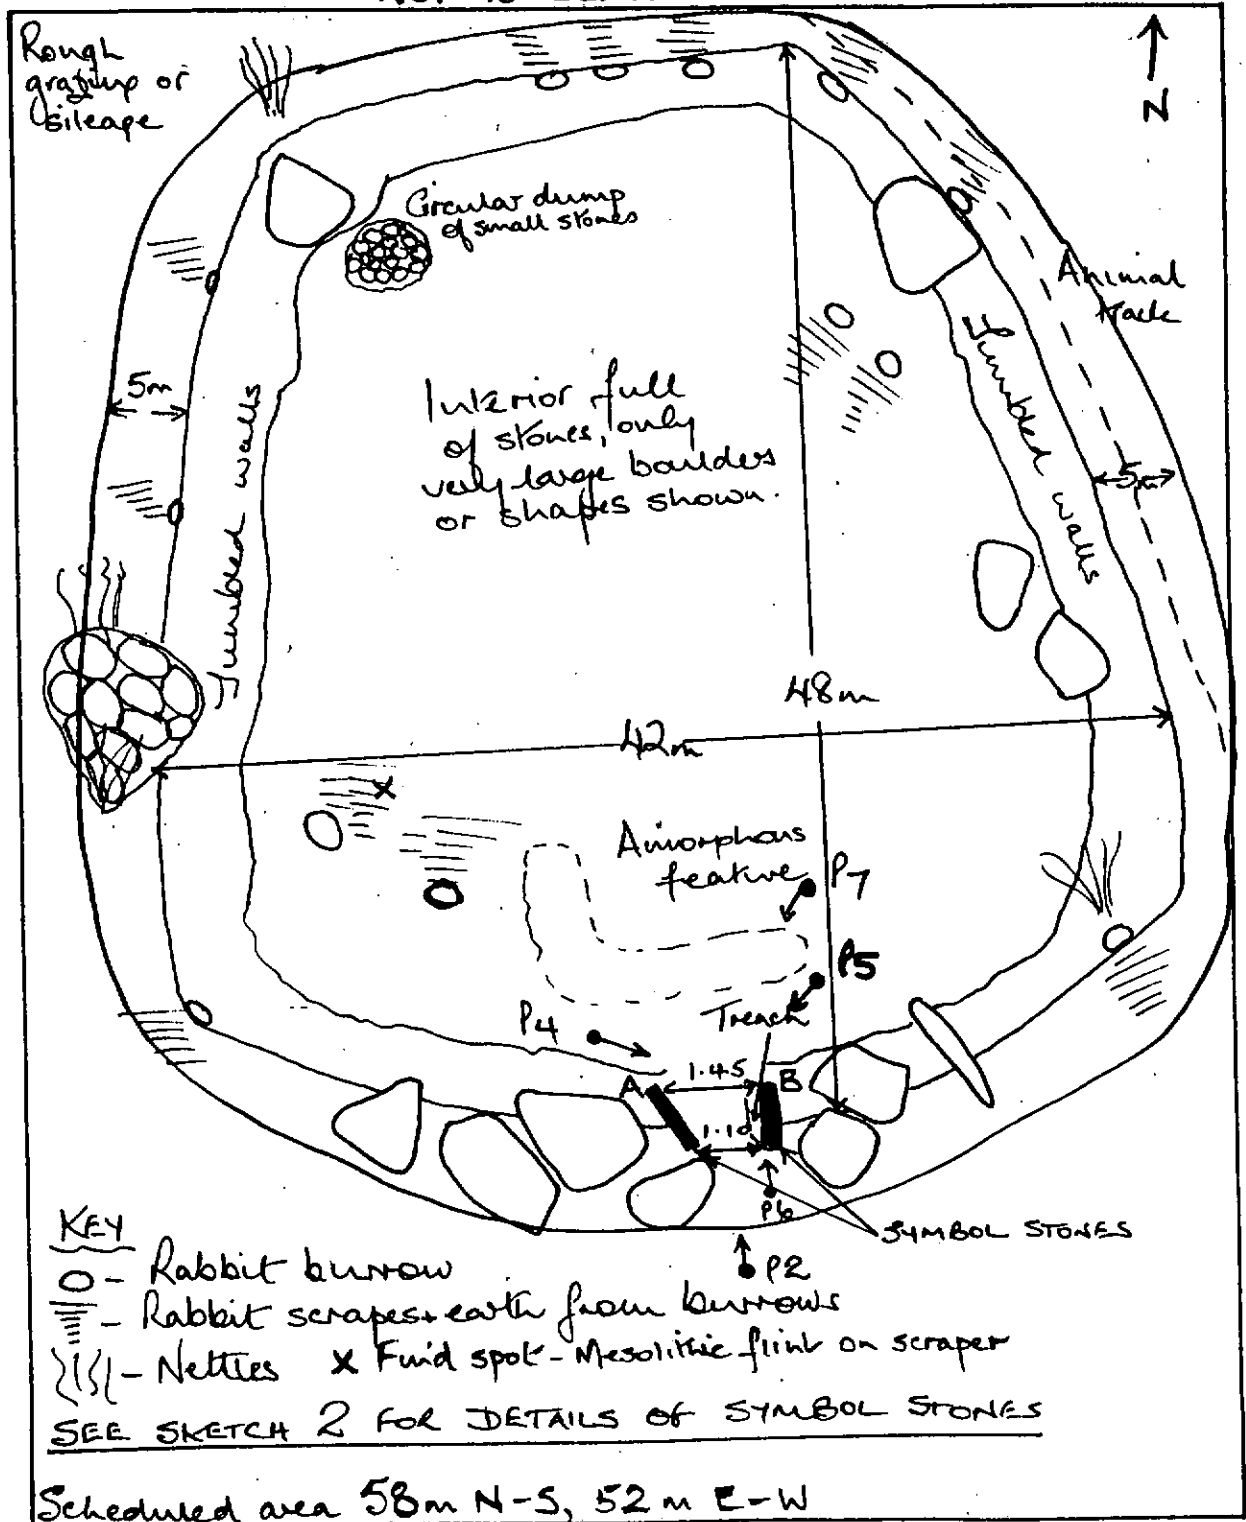 Rough
grazing or
sileage
N
Circular dump
of small stones
Animal
track
5m
Tumbled walls
Interior full
of stones, only
very large boulders
or shapes shown.
Tumbled walls
5m
48m
42m
x
Amorphous
feature
P7
P5
P4
Trench
A
1.45
B
1.10
P6
SYMBOL STONES
P2
KEY
O - Rabbit burrow
- Rabbit scrapes + earth from burrows
- Nettles x Find spot - Mesolithic flint on scraper
SEE SKETCH 2 FOR DETAILS OF SYMBOL STONES
Scheduled area 58m N-S, 52m E-W